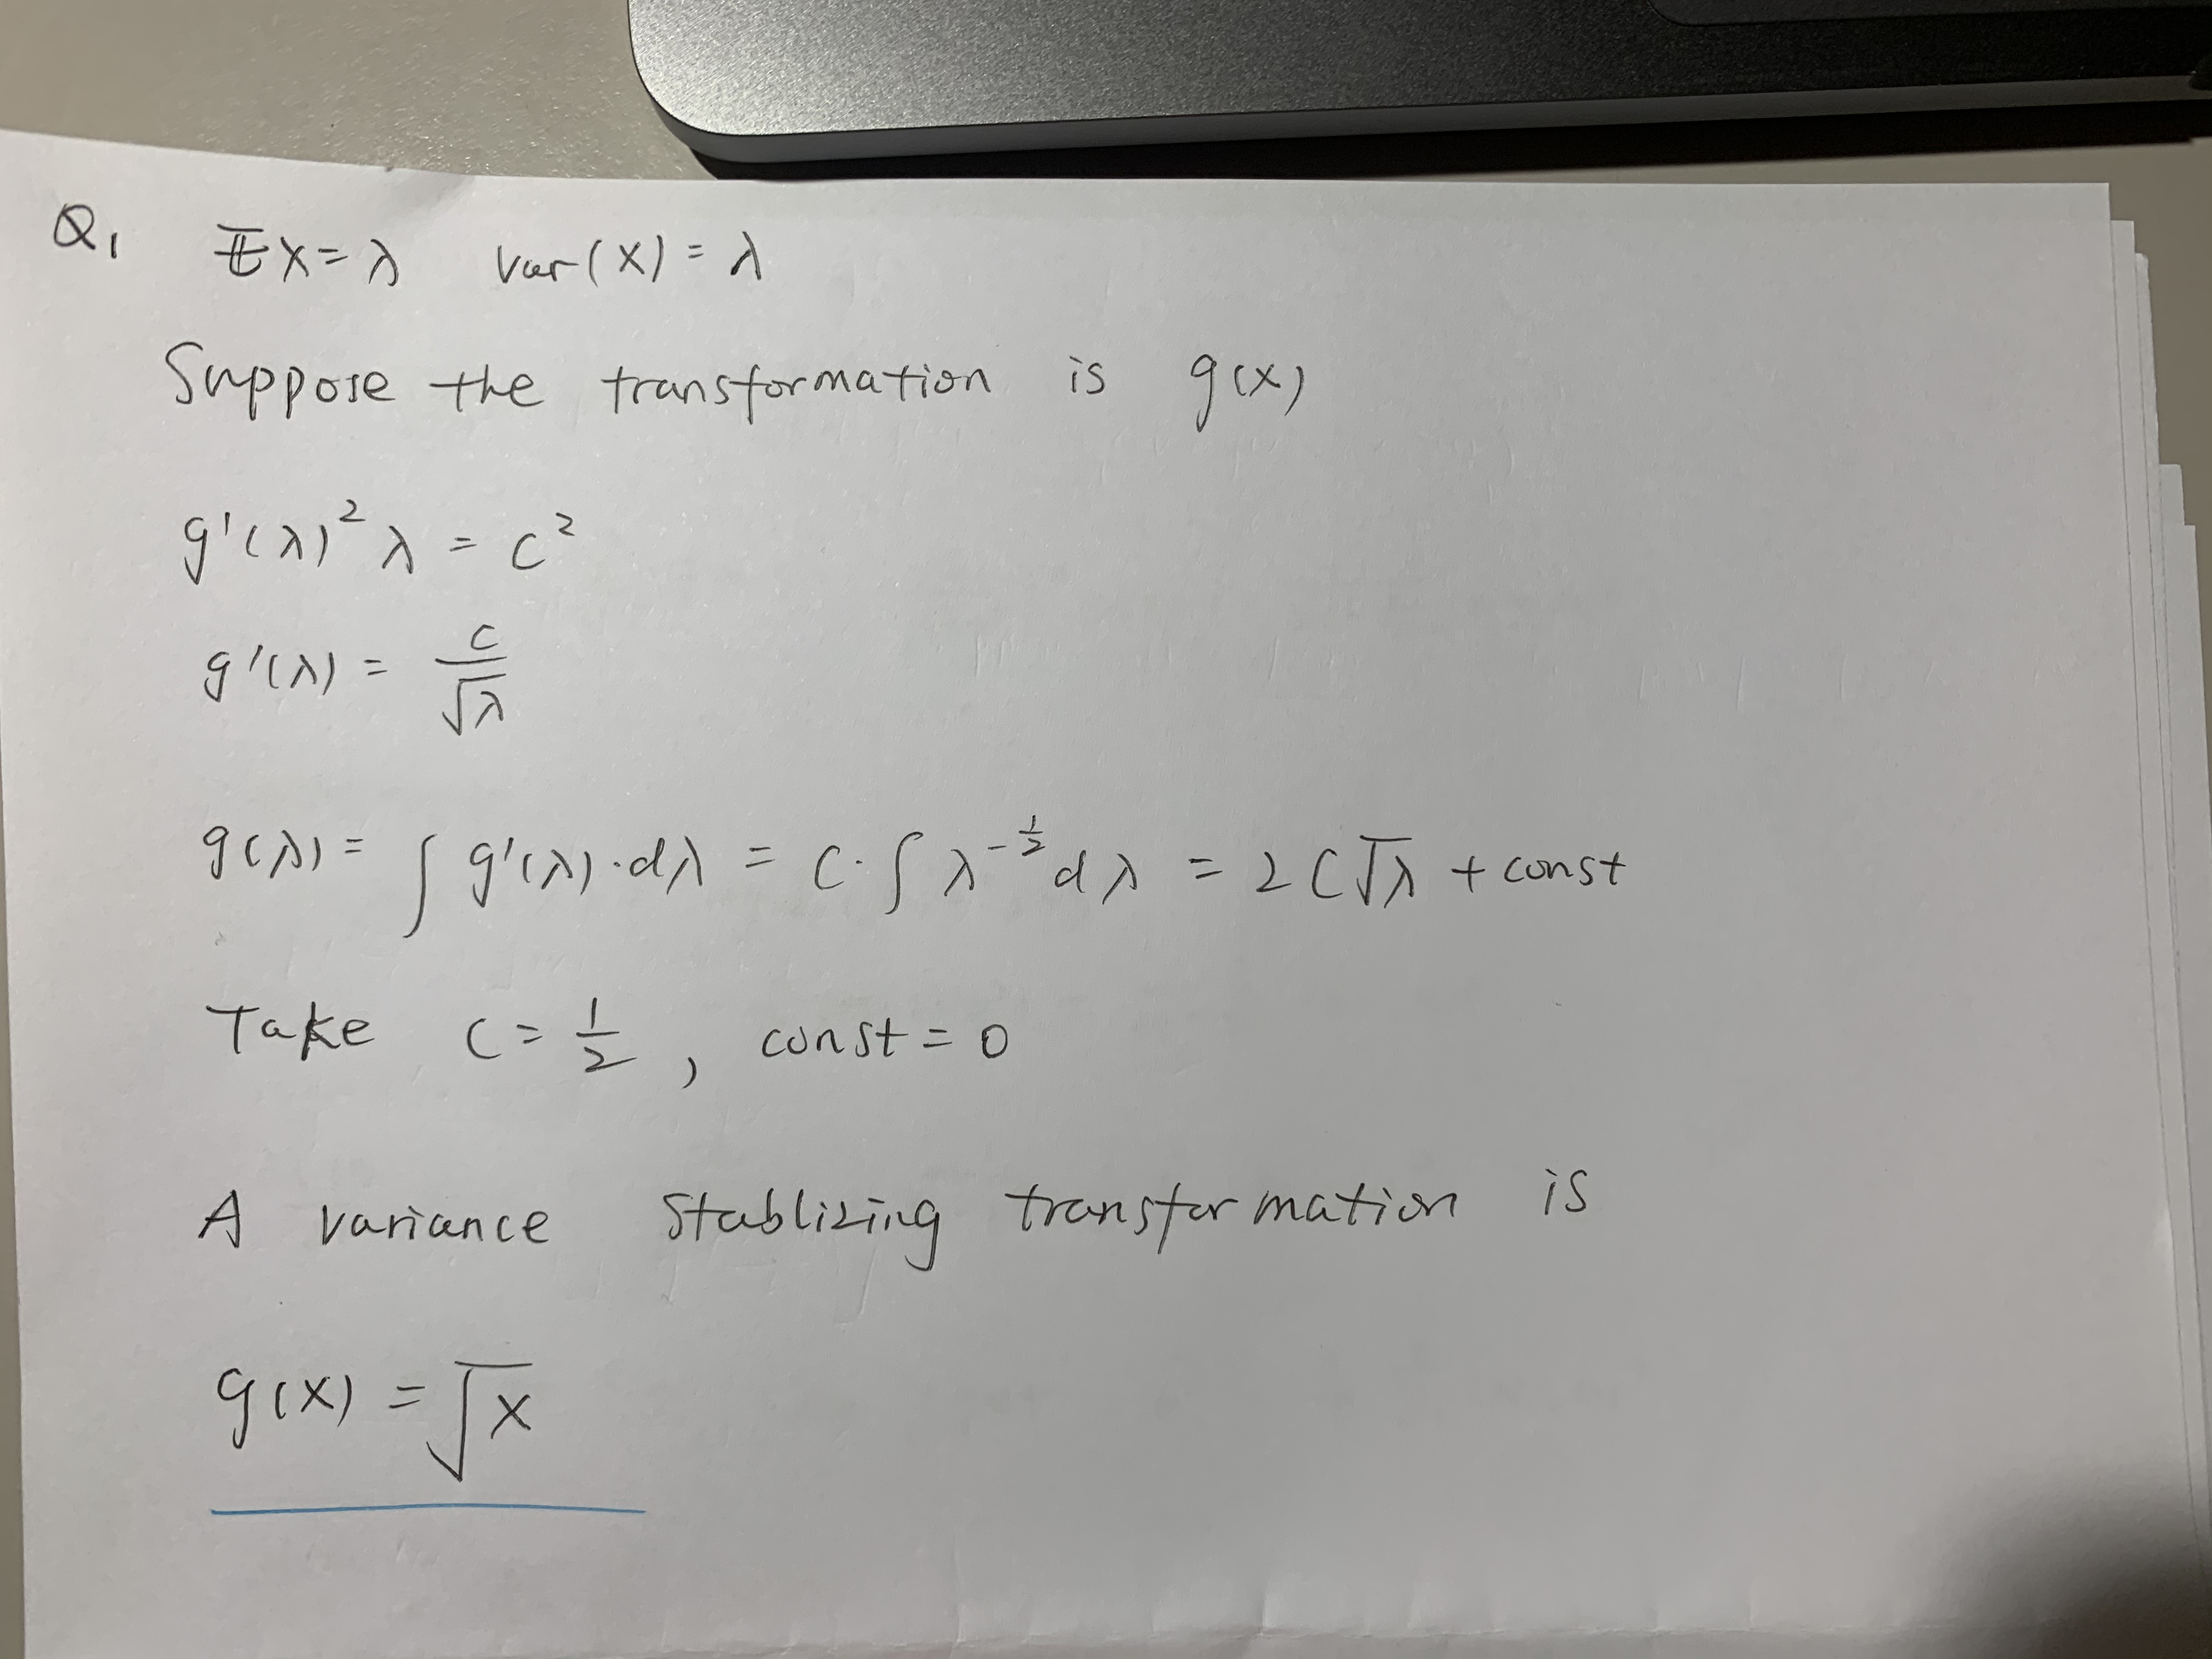 Q1 𝔼X = λ var(X) = λ
Suppose the transformation is g(x)
g'(λ)² λ = c²
g'(λ) = c/√λ
g(λ) = ∫ g'(λ)·dλ = C·∫ λ^(-1/2) dλ = 2C√λ + const
Take C = 1/2, const = 0
A variance Stablizing transformation is
g(x) = √x